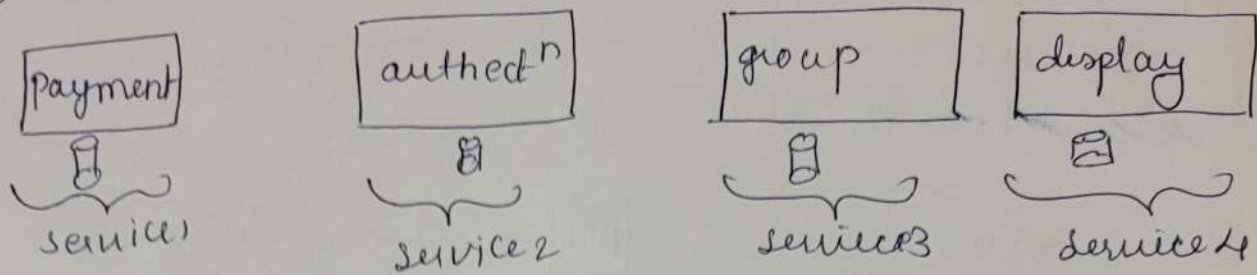 payment authectⁿ group display
service1 service2 service3 service4